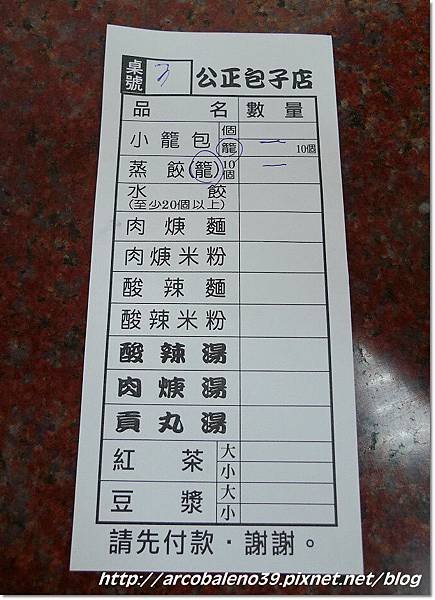 桌號 3 公正包子店
品名 數量
小籠包 個 籠 一 10個
蒸餃(籠) 10個 一
水餃
(至少20個以上)
肉焿麵
肉焿米粉
酸辣麵
酸辣米粉
酸辣湯
肉焿湯
貢丸湯
紅茶 大 小
豆漿 大 小
請先付款·謝謝。
http://arcobaleno39.pixnet.net/blog